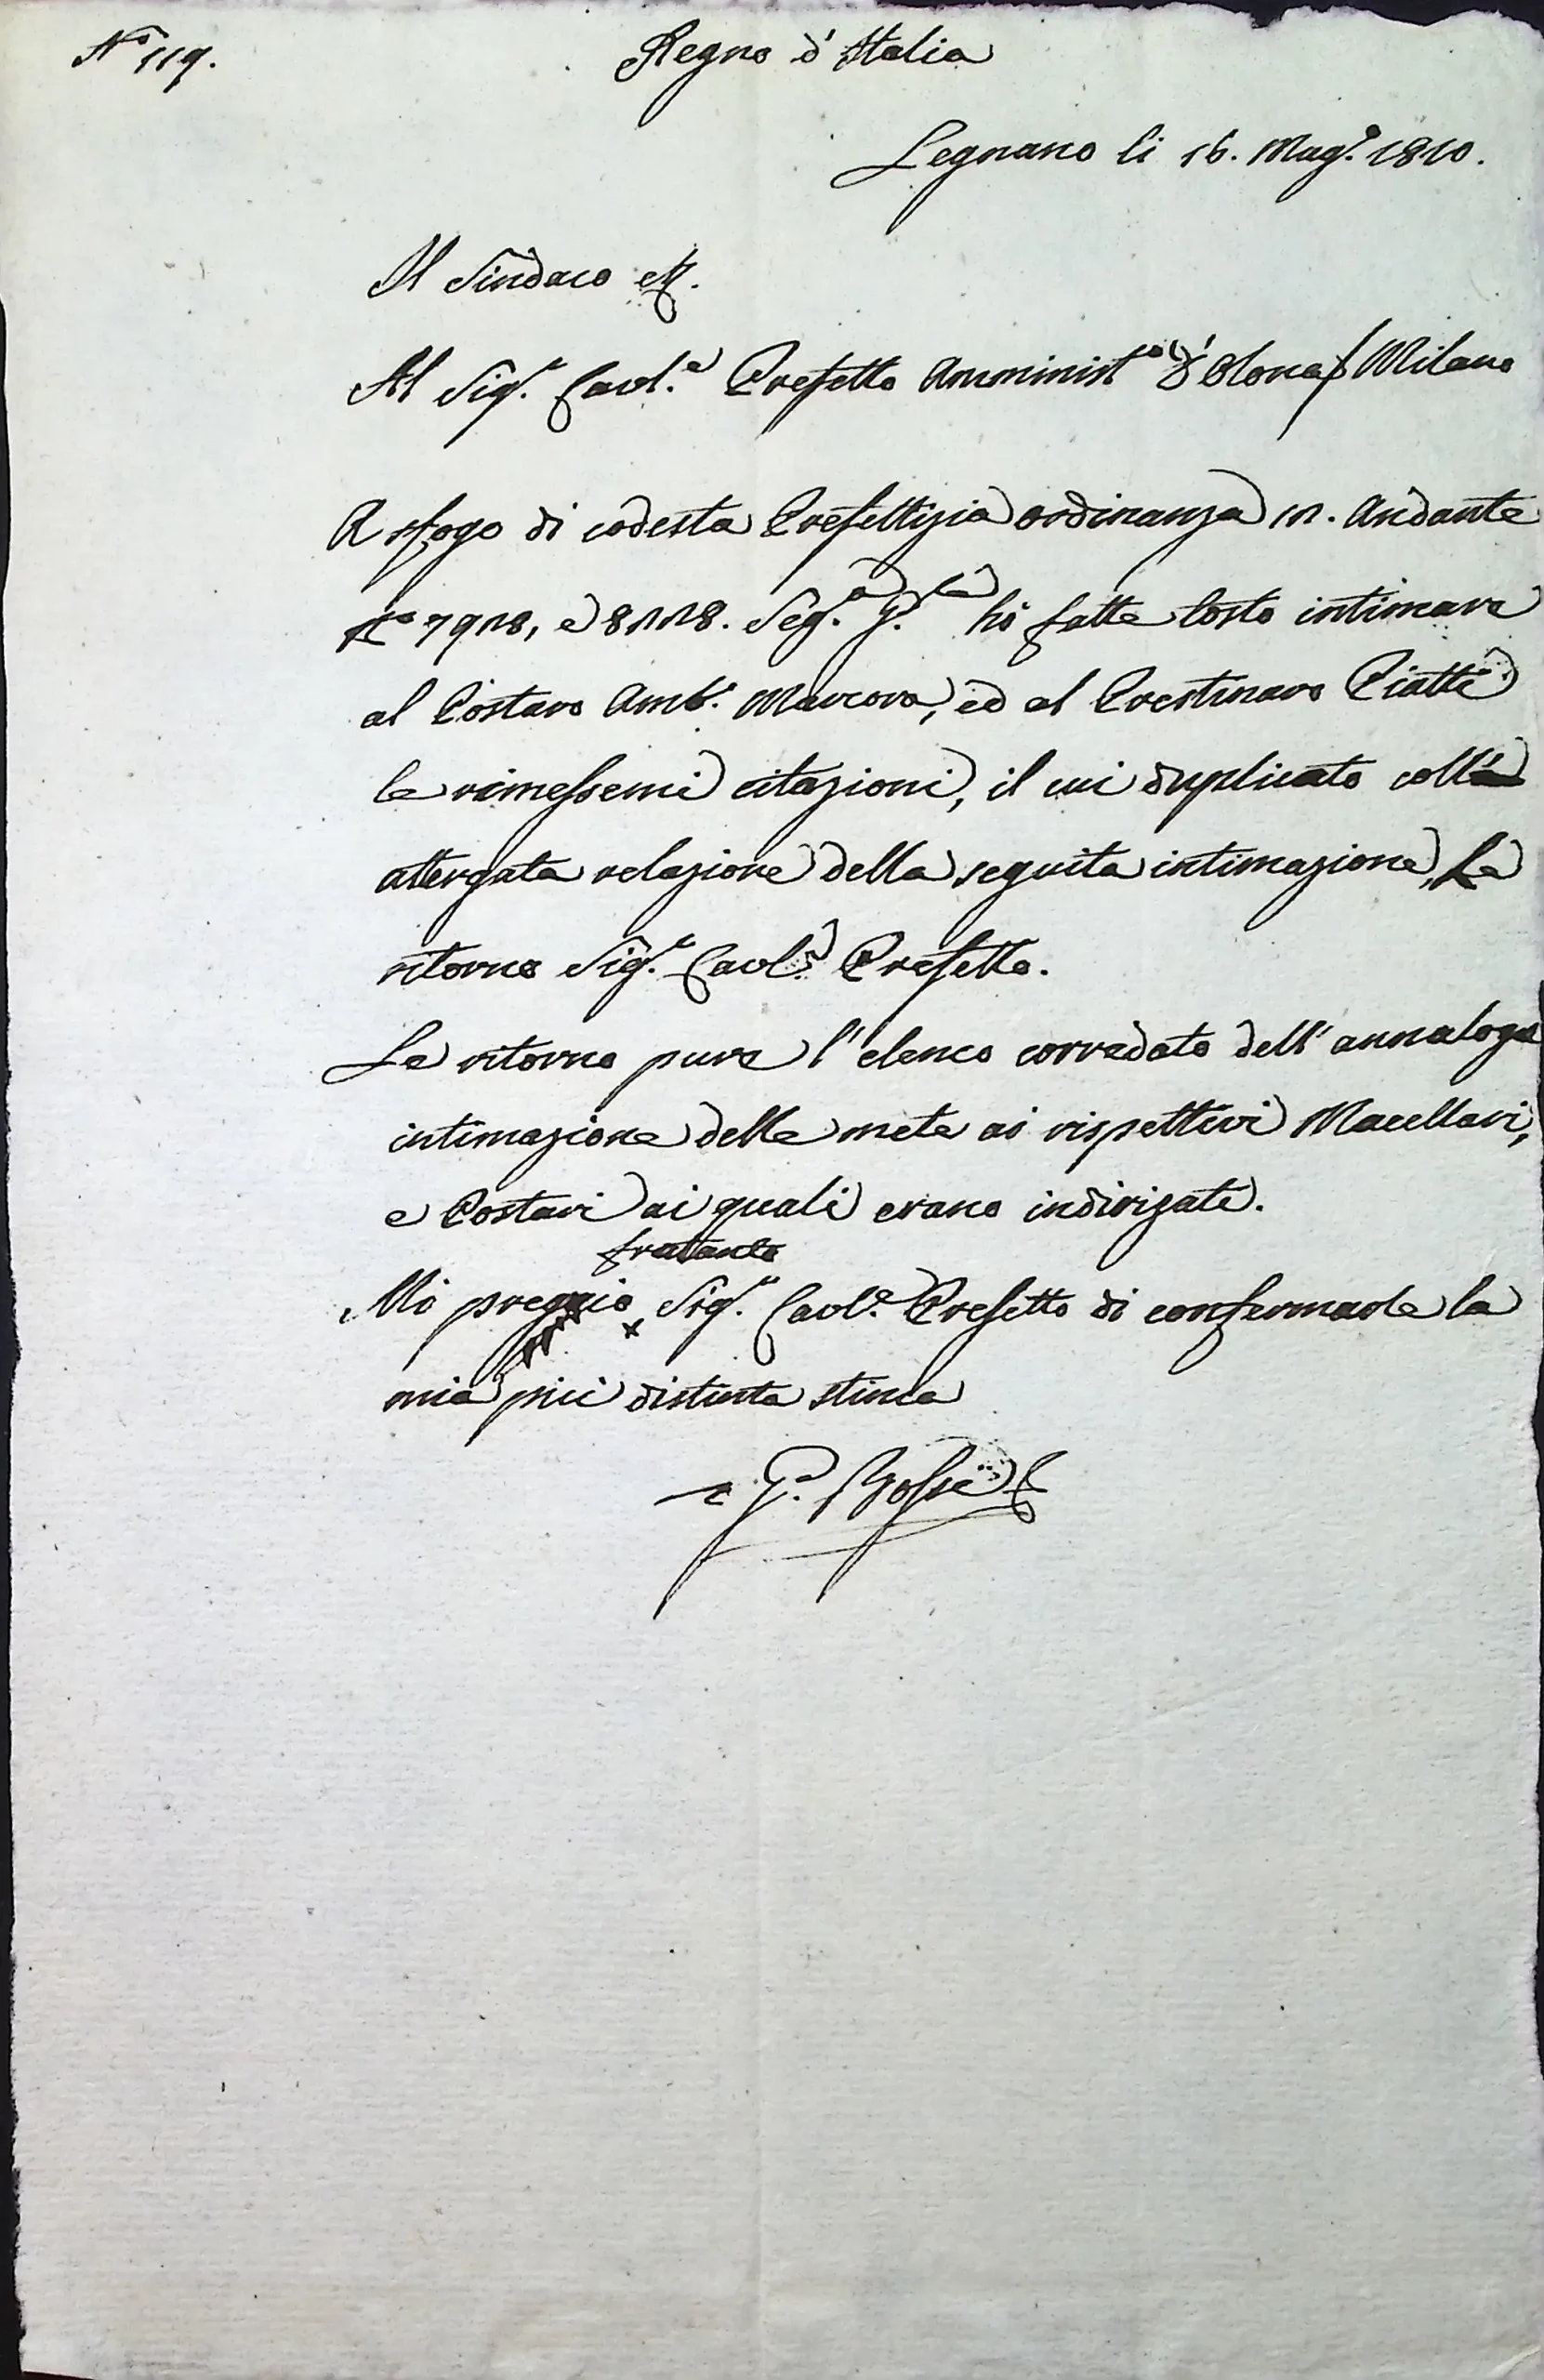 N.º 119.
Regno d'Italia
Legnano li 16. Mag.º 1810.
Il Sindaco
Al Sig.r Cavl.e Prefetto Amminist.o d'Olona / Milano
A sfogo di codesta Prefettizia ordinanza 12. Andante
N.º 7928, e 8228. Seg.a P.ma hò fatte tosto intimare
al Postaro Amb.º Marcora, ed al Prestinaro Piatti
le rimessemi citazioni, il cui duplicato coll'
attergata relazione della seguita intimazione, Le
ritorno Sig.r Cavl.e Prefetto.
Le ritorno pure l'elenco corredato dell'annaloga
intimazione delle mete ai rispettivi Macellari,
e Postari ai quali erano indirizate.
frattanto
Mi preggio Sig.r Cavl.e Prefetto di confermarle la
mia più distinta stima
G. Bossi